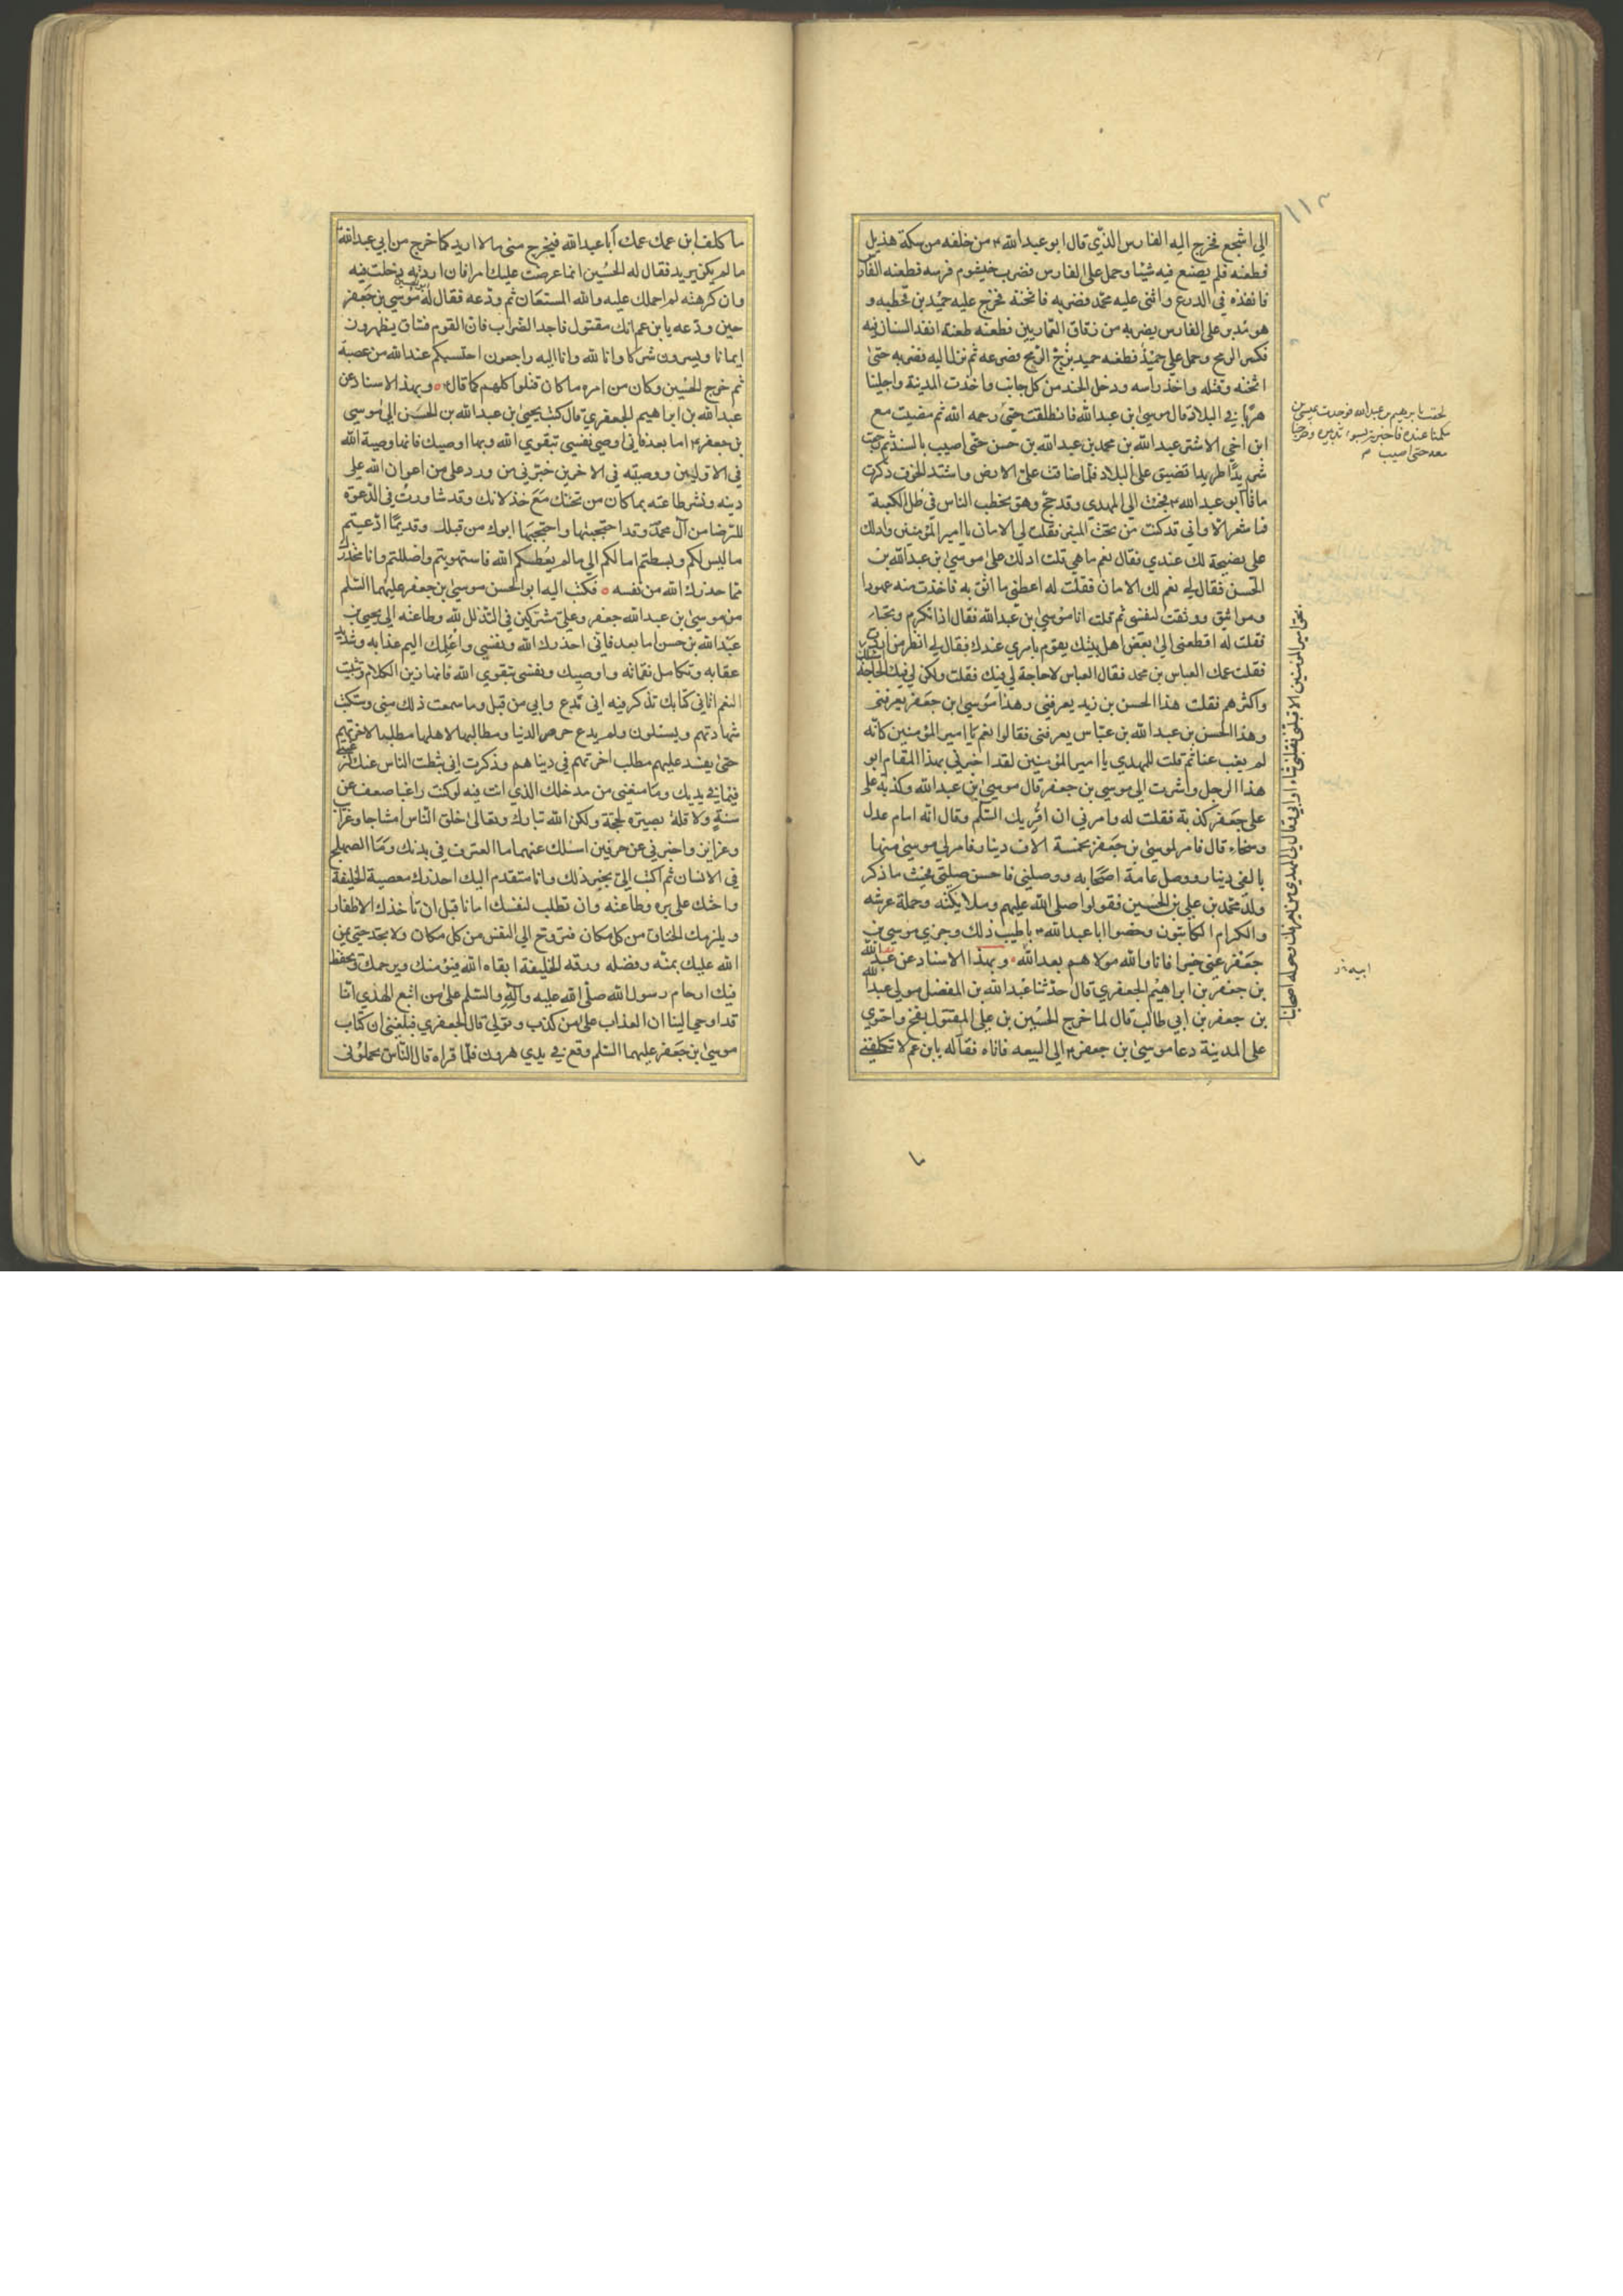 الي اشجع فخرج اليه الفارس الذي قال ابو عبد الله ۴ من خلفه من سكة هذيل
فطعنه فلم يصنع فيه شيئا وحمل على الفارس فضرب خيشوم فرسه فطعنه الفارس
فانفذه في الدرع وانثنى عليه محمد فضربه فاثخنه فخرج عليه حميد بن قحطبه و
هو مدبر على الفارس يضربه من زقاق العماريين فطعنه طعنة انفد السنان فيه
فكسر الرمح وحمل على حميد فطعنه حميد بزج الرمح فصرعه ثم نزل اليه فضربه حتى
اثخنه وقتله واخذ راسه ودخل الجند من كل جانب واخذت المدينة واجلينا
هربا في البلاد قال موسى بن عبد الله فانطلقت حتى رحمه الله ثم مضيت مع
ابن اخي الاشتر عبد الله بن محمد بن عبد الله بن حسن حتى اصيب بالسند ثم رجعت
شريدا طريدا تضيق علي البلاد فلما ضاقت علي الارض واشتد الخوف ذكرت
ما قال ابو عبد الله ۴ فجئت الى المهدي وقد حج وهو يخطب الناس في ظل الكعبة
فما شعر الا واني قد كنت من تحت المنبر فقلت لي الامان يا امير المؤمنين وادلك
على نصيحة لك عندي فقال نعم ما هي قلت ادلك على موسى بن عبد الله بن
الحسن فقال لي نعم لك الامان فقلت له اعطني ما اثق به فاخذت منه عهودا
ومواثيق ووثقت لنفسي ثم قلت انا موسى بن عبد الله فقال اذا تكرم وتحبا
فقلت له اقطعني الى بعض اهل بيتك يقوم بامري عندك فقال لي انظر من اردت
فقلت عمك العباس بن محمد فقال العباس لا حاجة لي فيك فقلت ولكن لي فيك الحاجة
واكثرهم فقلت هذا الحسن بن زيد يعرفني وهذا موسى ابن جعفر يعرفني
وهذا الحسن بن عبد الله بن عباس يعرفني فقالوا نعم يا امير المؤمنين كانه
لم يغب عنا ثم قلت للمهدي يا امير المؤمنين لقد اخبرني بهذا المقام ابو
هذا الرجل واشرت الى موسى بن جعفر قال موسى بن عبد الله وكذبت على
على جعفر كذبة فقلت له وامرني ان اقريك السلم وقال انه امام عدل
وسخاء قال فامر لموسى بن جعفر بخمسة الاف دينار فامر لي موسى منها
بالفي دينار ووصل عامة اصحابه ووصلني فاحسن صلتي فحيث ما ذكر
ولد محمد بن علي بن الحسين فقولوا صلى الله عليهم وملائكته وحملة عرشه
والكرام الكاتبون وخصوا ابا عبد الله ۴ باطيب ذلك وجزى موسى بن
جعفر عني خيرا فانا والله مولاهم بعد الله وبهذا الاسناد عن عبد الله
بن جعفر بن ابراهيم الجعفري قال حدثنا عبد الله بن المفضل مولى عبد الله
بن جعفر بن ابي طالب قال لما خرج الحسين بن علي المقتول بفخ واحتوى
على المدينة دعا موسى بن جعفر ۴ الى البيعه فاتاه فقال له يا بن عم لا تكلفني
لحقت بابرهيم بن عبد الله فوجدت عيسى بن
مكمنا عنده فاخبرته بسوء تدبيره وخرجنا
معه حتى اصيب
ما كلف ابن عمك عمك أبا عبد الله فيخرج مني ما لا اريد كما خرج من ابي عبد الله
ما لم يكن يريد فقال له الحسين انما عرضت عليك امرا فان اردته دخلت فيه
وان كرهته لم احملك عليه والله المستعان ثم ودعه فقال له موسى بن جعفر
حين ودعه يا بن عم انك مقتول فاجد الضراب فان القوم فساق يظهرون
ايمانا ويسرون شركا وانا لله وانا اليه راجعون احتسبكم عند الله من عصبة
ثم خرج الحسين وكان من امره ما كان قتلوا كلهم كما قال ۴ وبهذا الاسناد عن
عبد الله بن ابراهيم الجعفري قال كتب يحيى بن عبد الله بن الحسن الى موسى
بن جعفر ۴ اما بعد فاني اوصي نفسي بتقوى الله وبها اوصيك فانها وصية الله
في الاولين ووصيته في الاخرين خبرني من ورد علي من اعوان الله على
دينه ونشر طاعته بما كان من تحننك مع خذلانك وقد شاورت في الدعوة
للرضا من آل محمد وقد احتجبتها واحتجبها ابوك من قبلك وقديما ادعيتم
ما ليس لكم وبسطتم امالكم الى ما لم يعطكم الله فاستهويتم واضللتم وانا محذرك
ما حذرك الله من نفسه فكتب اليه ابو الحسن موسى بن جعفر عليهما السلم
من موسى بن عبد الله جعفر وعلي مشتركين في التذلل لله وطاعته الى يحيى بن
عبد الله بن حسن اما بعد فاني احذرك الله ونفسي واعلمك اليم عذابه وشديد
عقابه وتكامل نقماته واوصيك ونفسي بتقوى الله فانها زين الكلام وتثبيت
النعم اتاني كتابك تذكر فيه اني مدع وابي من قبل وما سمعت ذلك مني وستكتب
شهادتهم ويسئلون ولم يدع حرص الدنيا ومطالبها لاهلها مطلبا لاخرتهم
حتى يفسد عليهم مطلب اخرتهم في دنياهم وذكرت اني ثبطت الناس عنك لرغبتي
فيما في يديك وما منعني من مدخلك الذي انت فيه لو كنت راغبا ضعف عن
سنة ولا قلة بصيرة بحجة ولكن الله تبارك وتعالى خلق الناس امشاجا وغرائب
وغرائز واخبرني عن حرفين اسئلك عنهما ما العترف في بدنك وما الصهلج
في الانسان ثم اكتب الي بخبر ذلك وانا متقدم اليك احذرك معصية الخليفة
واحثك على بره وطاعته وان تطلب لنفسك امانا قبل ان تاخذك الاظفار
ويلزمك الخناق من كل مكان فتروح الى النفس من كل مكان ولا تجده حتى يمن
الله عليك بمنه وفضله ورقة الخليفة ابقاه الله فيؤمنك ويرحمك ويحفظ
فيك ارحام رسول الله صلى الله عليه وآله والسلم على من اتبع الهدى انا
قد اوحي الينا ان العذاب على من كذب وتولى قال الجعفري فبلغني ان كتاب
موسى بن جعفر عليهما السلم وقع في يدي هرون فلما قراه قال الناس يحملوني